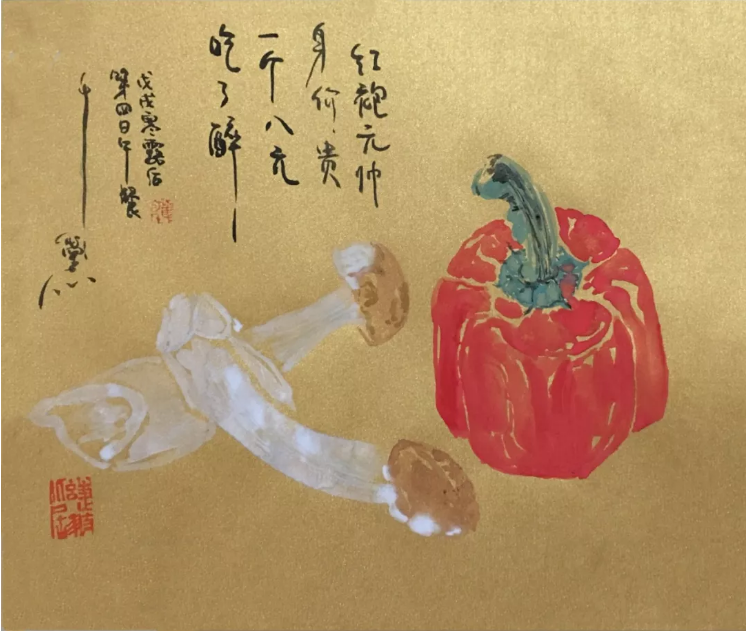 红袍元帅
身价贵
一斤八元
吃了醉
戊戌寒露后
第四日午餐